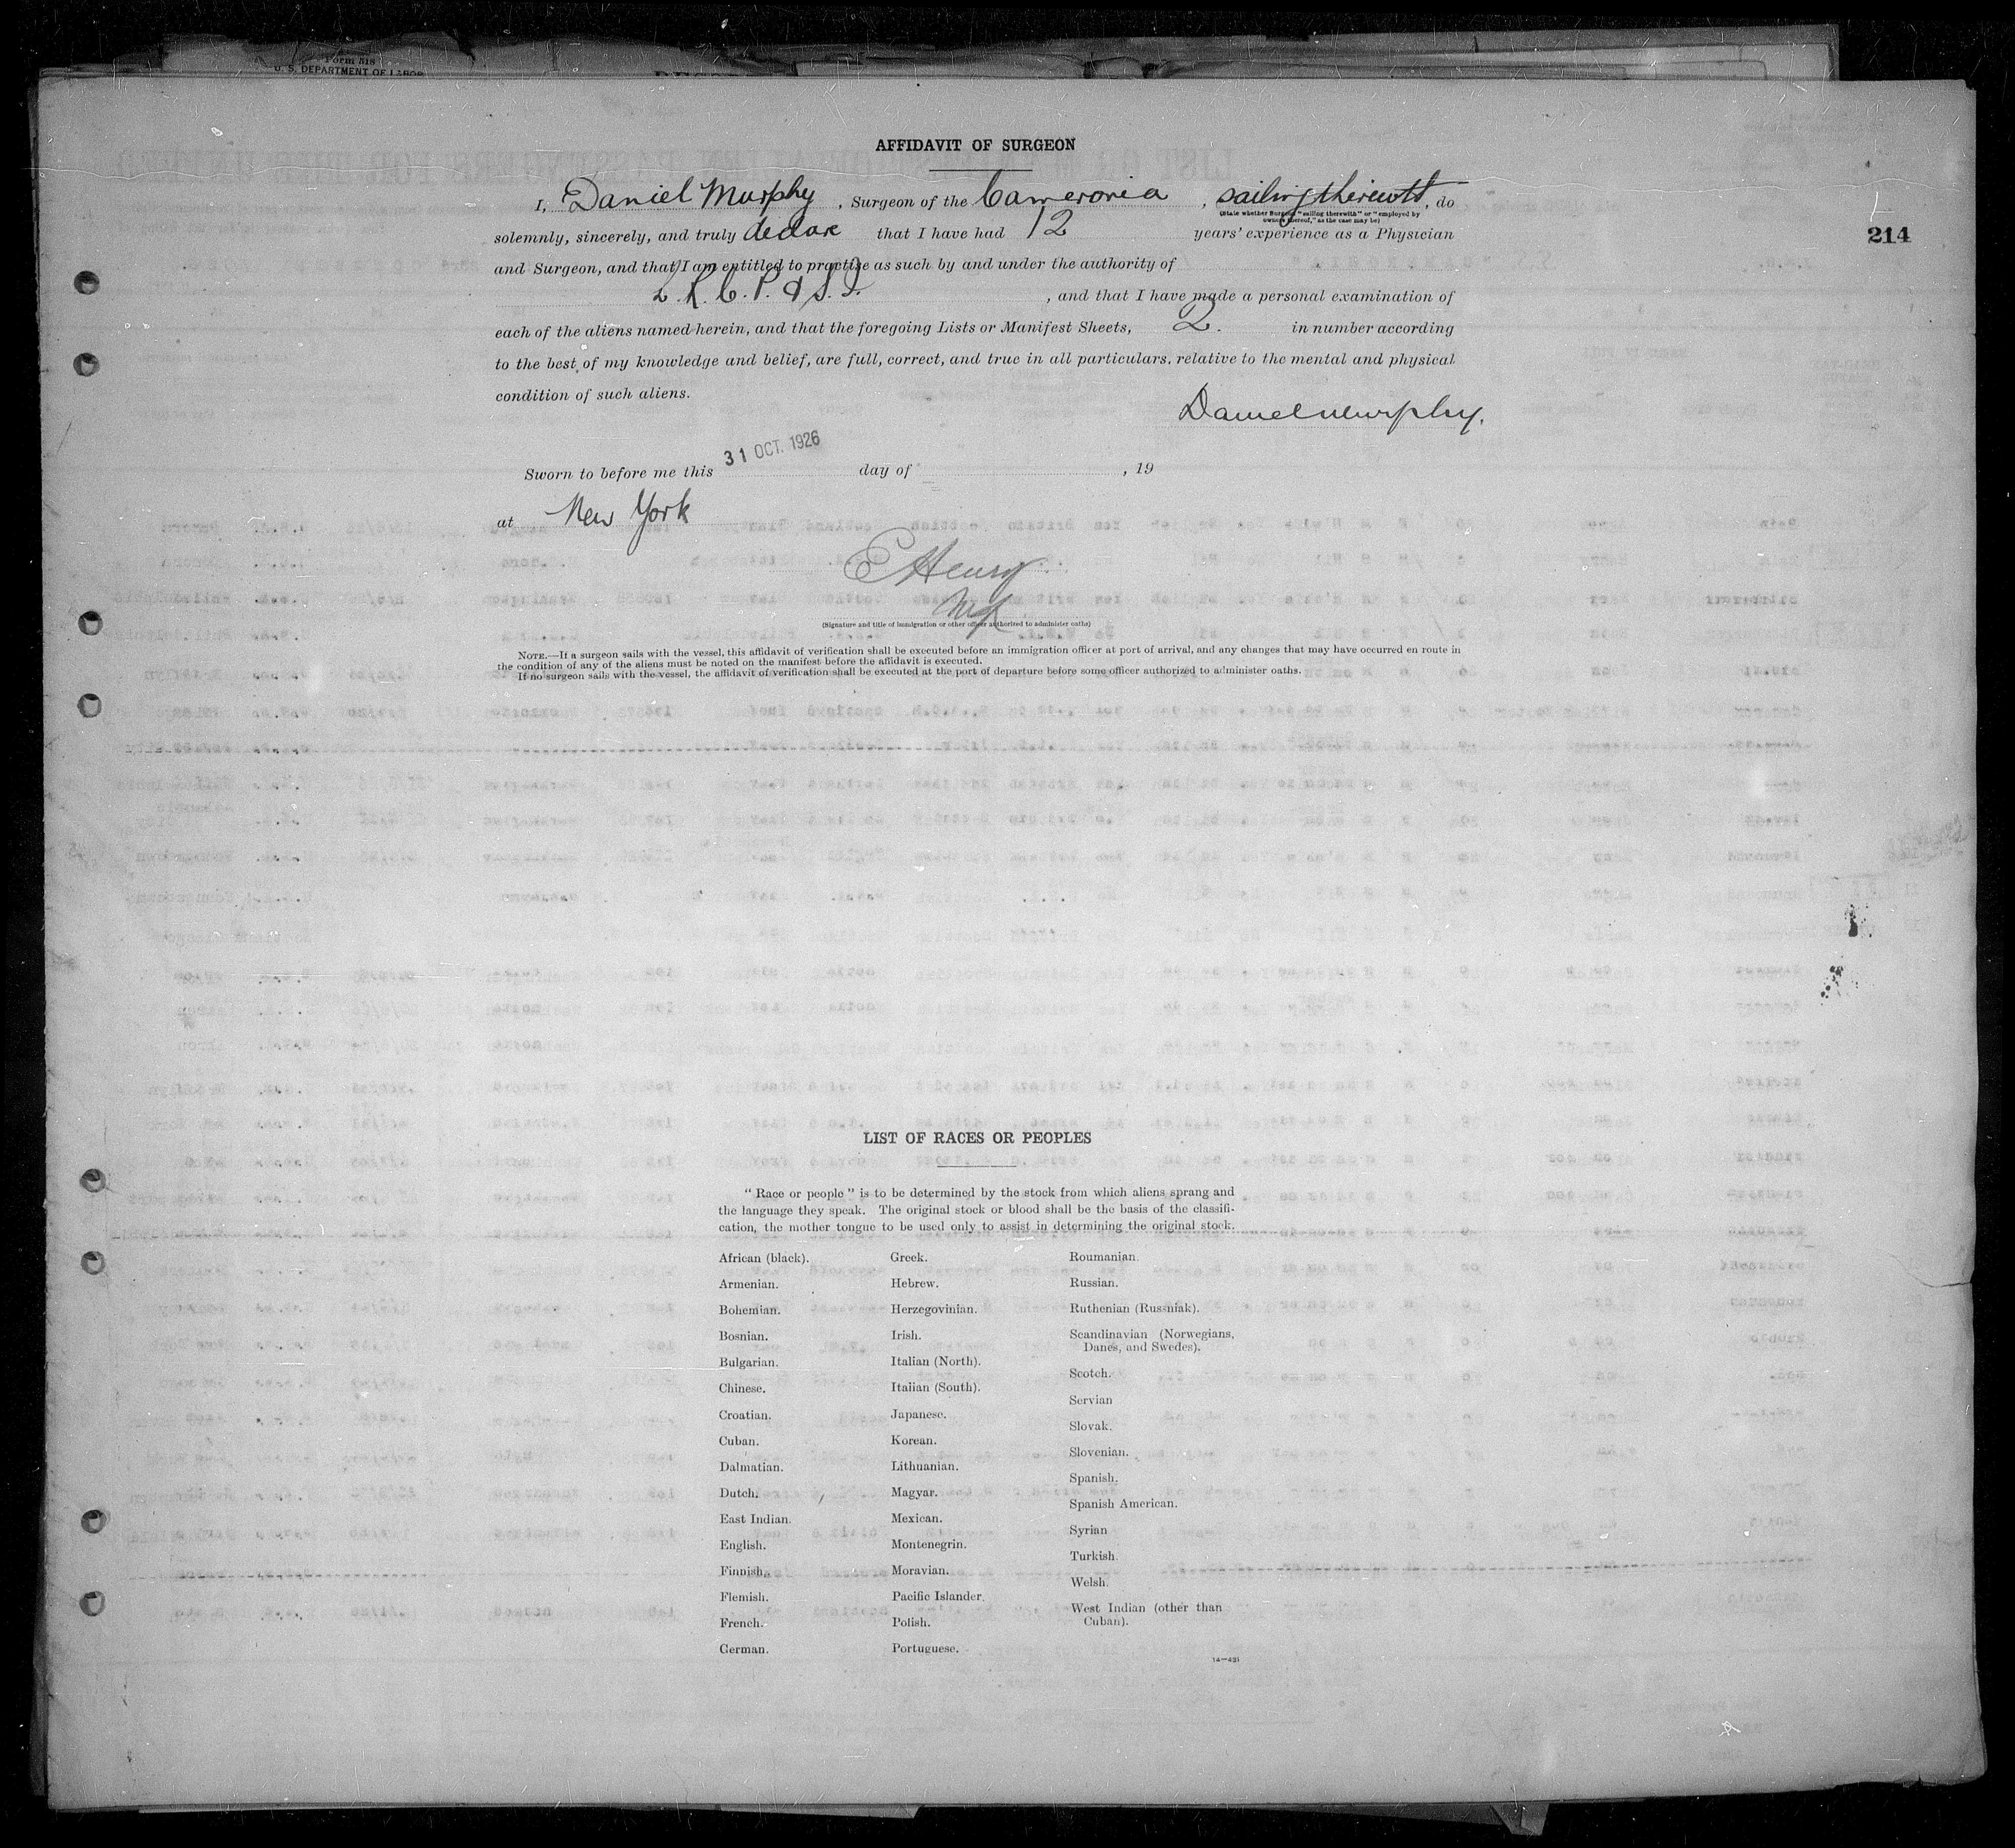 Form 518
U. S. DEPARTMENT OF LABOR
AFFIDAVIT OF SURGEON
I, Daniel Murphy, Surgeon of the Cameronia, sailing therewith, do
(State whether Surgeon "sailing therewith" or "employed by
owners thereof," as the case may be)
214
solemnly, sincerely, and truly declare that I have had 12 years' experience as a Physician
and Surgeon, and that I am entitled to practise as such by and under the authority of
L.R.C.P. & S.I. , and that I have made a personal examination of
each of the aliens named herein, and that the foregoing Lists or Manifest Sheets, 2. in number according
to the best of my knowledge and belief, are full, correct, and true in all particulars, relative to the mental and physical
condition of such aliens.
Daniel Murphy.
Sworn to before me this 31 OCT. 1926 day of , 19
at New York
E Henry
(Signature and title of immigration or other officer authorized to administer oaths)
NOTE.—If a surgeon sails with the vessel, this affidavit of verification shall be executed before an immigration officer at port of arrival, and any changes that may have occurred en route in
the condition of any of the aliens must be noted on the manifest before the affidavit is executed.
If no surgeon sails with the vessel, the affidavit of verification shall be executed at the port of departure before some officer authorized to administer oaths.
LIST OF RACES OR PEOPLES
"Race or people" is to be determined by the stock from which aliens sprang and
the language they speak. The original stock or blood shall be the basis of the classifi-
cation, the mother tongue to be used only to assist in determining the original stock.
African (black).
Armenian.
Bohemian.
Bosnian.
Bulgarian.
Chinese.
Croatian.
Cuban.
Dalmatian.
Dutch.
East Indian.
English.
Finnish.
Flemish.
French.
German.
Greek.
Hebrew.
Herzegovinian.
Irish.
Italian (North).
Italian (South).
Japanese.
Korean.
Lithuanian.
Magyar.
Mexican.
Montenegrin.
Moravian.
Pacific Islander.
Polish.
Portuguese.
Roumanian.
Russian.
Ruthenian (Russniak).
Scandinavian (Norwegians,
Danes, and Swedes).
Scotch.
Servian
Slovak.
Slovenian.
Spanish.
Spanish American.
Syrian
Turkish.
Welsh.
West Indian (other than
Cuban).
14—431